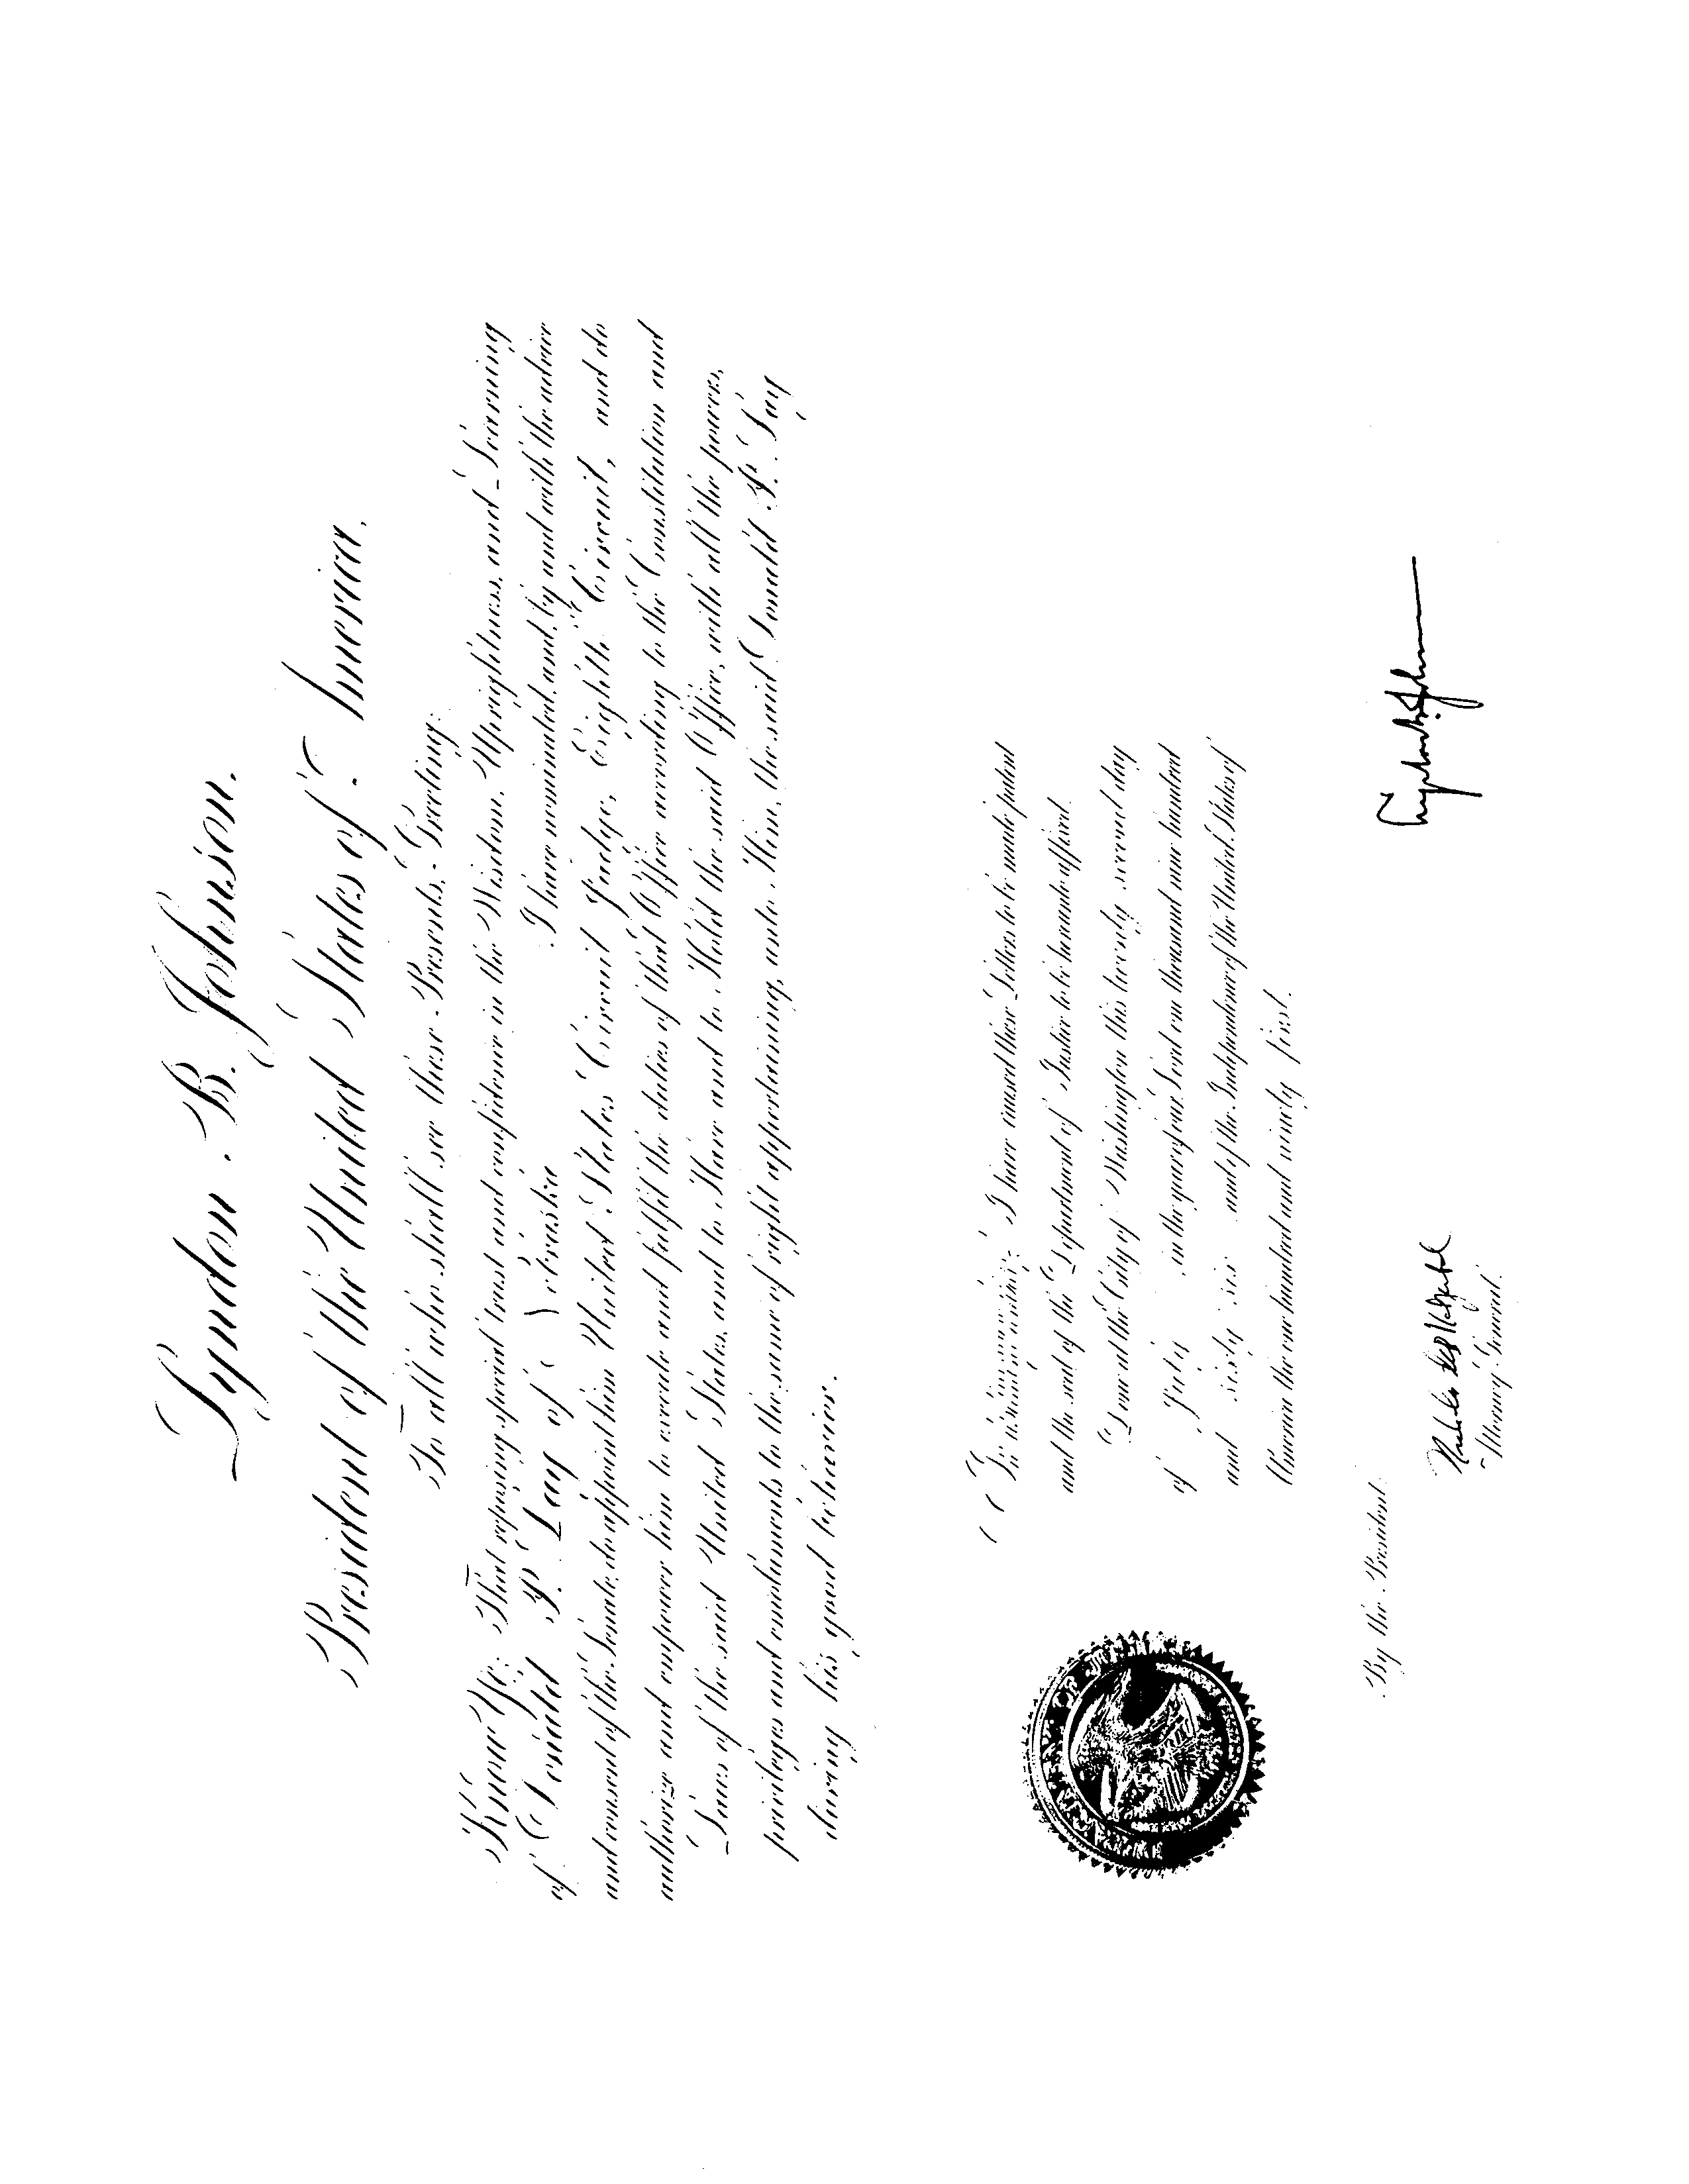 Lyndon B. Johnson.
President of the United States of America.
To all who shall see these Presents, Greeting:
Know Ye; That reposing special trust and confidence in the Wisdom, Uprightness, and Learning
of Donald P. Lay of Nebraska I have nominated, and, by and with the advice
and consent of the Senate, do appoint him United States Circuit Judge, Eighth Circuit, and do
authorize and empower him to execute and fulfil the duties of that Office according to the Constitution and
Laws of the said United States, and to Have and to Hold the said Office, with all the powers,
privileges and emoluments to the same of right appertaining, unto Him, the said Donald P. Lay
during his good behavior.
In testimony whereof, I have caused these Letters to be made patent
and the seal of the Department of Justice to be hereunto affixed.
Done at the City of Washington this twenty second day
of July in the year of our Lord one thousand nine hundred
and sixty six and of the Independence of the United States of
America the one hundred and ninety first.
Lyndon B. Johnson
By the President:
Nicholas deB Katzenbach
Attorney General.